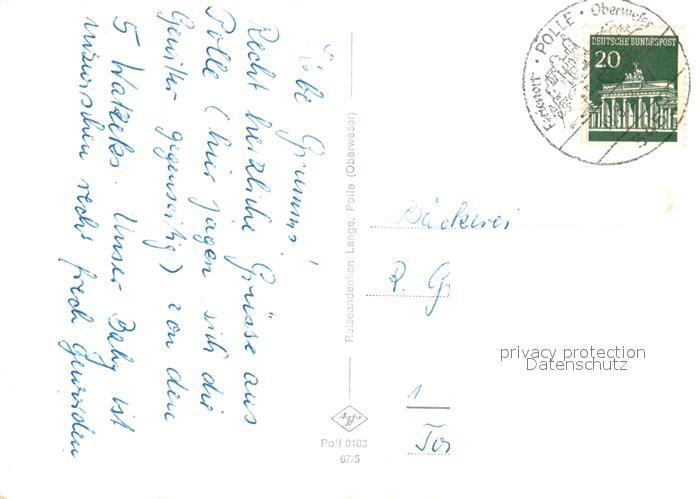 Liebe Grumms!
Recht herzliche Grüsse aus
Polle (hier jagen sich die
Gewitter gegenseitig) von den
5 Watzeks. Unser Baby ist
inzwischen recht frech geworden
Reiseandenken Lange, Polle (Oberweser)
Poll 0103
67/5
POLLE · Oberweser
Ferienort
DEUTSCHE BUNDESPOST
20
Bäckerei
R. G
privacy protection
Datenschutz
1